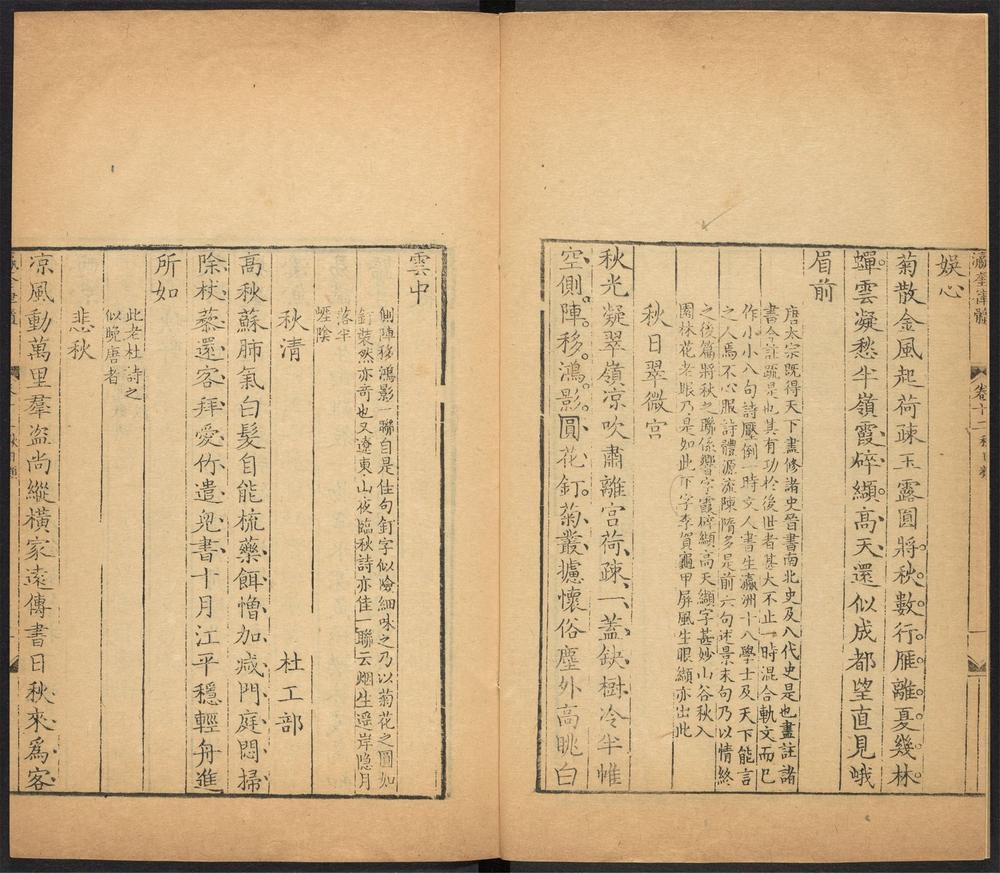 瀛奎律髓
卷十二
娯心
菊散金風起荷疎玉露圓將秋數行雁離夏幾林
蟬雲凝愁半嶺霞碎纈高天還似成都望直見峨
眉前
唐太宗既得天下盡修諸史晉書南北史及八代史是也盡註諸
書今註疏是也其有功於後世者甚大不止一時混合軌文而已
作小小八句詩壓倒一時文人書生瀛洲十八學士及天下能言
之人焉不心服詩體源流陳隋多是前六句述景末句乃以情終
之後篇將秋之聯係響字霞碎纈高天纈字甚妙山谷秋入
園林花老眼乃是如此下字李賀龜甲屏風生眼纈亦出此
秋日翠微宮
秋光凝翠嶺凉吹肅離宮荷疎一蓋缺樹冷半帷
空側陣移鴻影圓花釘菊叢攄懷俗塵外高眺白
雲中
側陣移鴻影一聯自是佳句釘字似險細味之乃以菊花之圓如
釘裝然亦奇也又遼東山夜臨秋詩亦佳一聯云烟生遥岸隐月
落半
崖陰
秋清 杜工部
高秋蘇肺氣白髮自能梳藥餌憎加减門庭悶掃
除杖藜還客拜愛竹遣兒書十月江平穩輕舟進
所如
此老杜詩之
似晚唐者
悲秋
凉風動萬里羣盗尚縱橫家遠傳書日秋來爲客